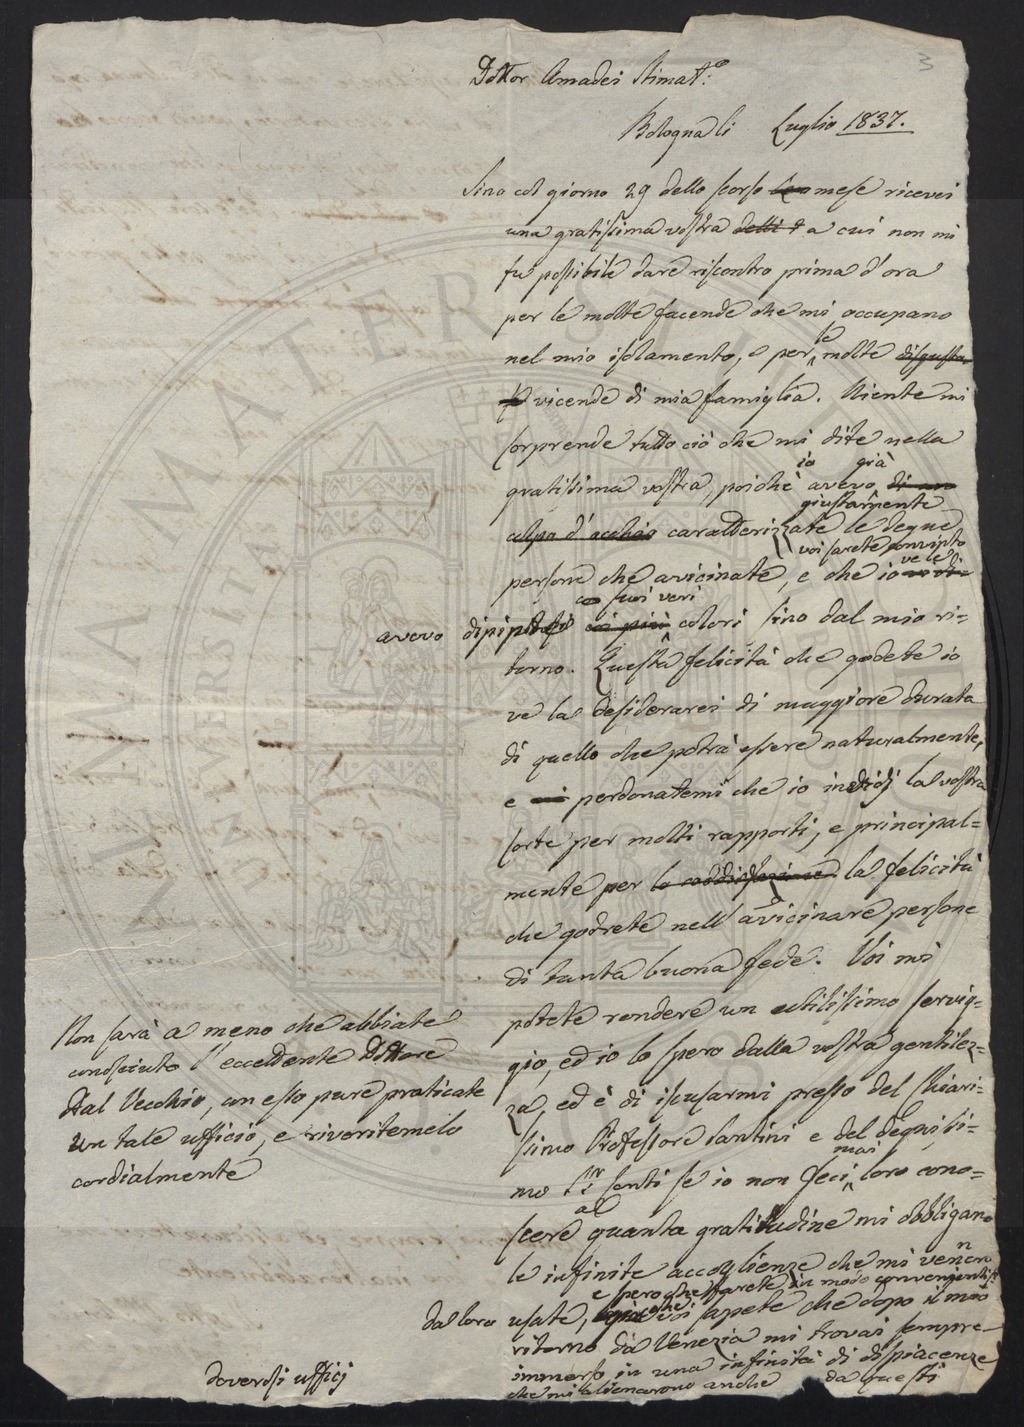 3
Dottor Amadei Stimat.mo
Bologna li Luglio 1837.
Sino col giorno 29 dello scorso mese ricevei
una gratissima vostra delli a cui non mi
fu possibile dare riscontro prima d'ora
per le molte facende che mi occupano
nel mio isolamento, e per le molte disgusta
vicende di mia famiglia. Niente mi
sorprende tutto ciò che mi dite nella
gratissima vostra, poichè io avevo già di un
colpo d'occhio giustamente caratterizzate le degne
persone che avicinate, e che io ve le
voi sarete convinto
avevo dipinte coi più co suoi veri colori sino dal mio ri=
torno. Questa felicità che godete io
ve la desiderarei di maggiore durata
di quello che potrà essere naturalmente,
e perdonatemi che io invidj la vostra
sorte per molti rapporti, e principal=
mente per la soddisfazione la felicità
che godrete nell'avicinare persone
di tanta buona fede. Voi mi
potete rendere un utilissimo servig=
gio, ed io lo spero dalla vostra gentilez=
za, ed è di iscusarmi presso del Chiari=
ssimo Professore Santini e del degnissi=
mo Sr. Conti se io non feci mai loro cono=
scere quanta gratitudine mi obbligano
al
le infinite accoglienze che mi vennero
dal loro usate, e pero che farete in modo conveniente
voi sapete che dopo il mio
ritorno da Venezia mi trovai sempre
immerso in una infinità di dispiacenze
che mi alienarono anche da questi
doverosi ufficj
Non sarà a meno che abbiate
conosciuto l'eccellente Dottore
Dal Vecchio, con esso pure praticate
un tale ufficio, e riveritemelo
cordialmente